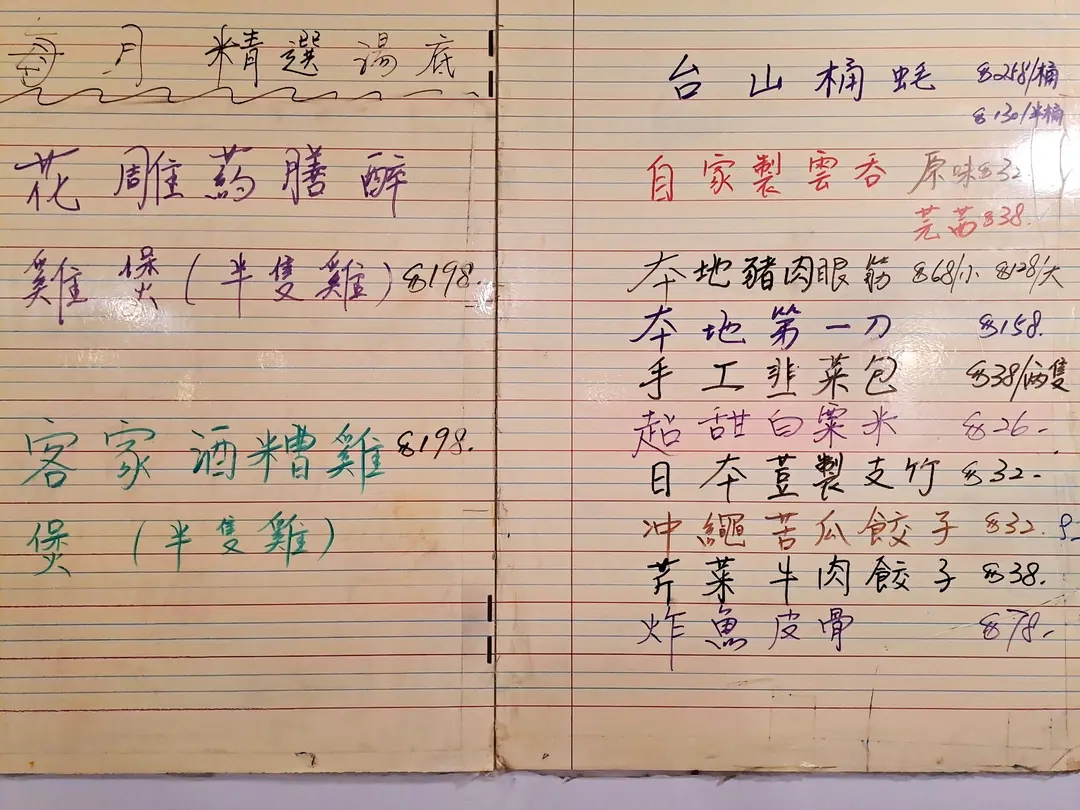 每月精選湯底
花雕葯膳醉
雞煲(半隻雞)$198.
客家酒糟雞$198.
煲(半隻雞)
台山桶蚝 $258/桶
$130/半桶
自家製雲吞 原味$32
芫茜$38.
本地豬肉眼筋 $68/小 $128/大
本地第一刀 $158.
手工韭菜包 $38/兩隻
超甜白粟米 $26-
日本荳製支竹 $32-
冲繩苦瓜餃子 $32.
芹菜牛肉餃子 $38.
炸魚皮骨 $78-